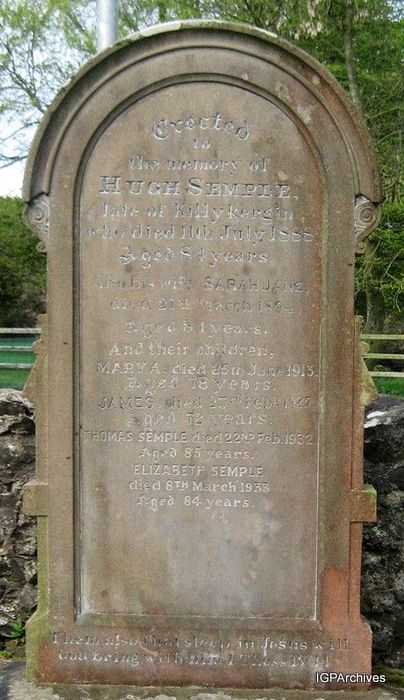 Erected
to
the memory of
HUGH SEMPLE,
late of Killykergin
who died 11th July 1888
Aged 84 years.
Also his wife SARAH JANE,
died 21st March
Aged 81 years.
And their children,
MARY A. died 25th June 1913.
Aged 78 years.
JAMES, died Feby
Aged 72 years.
THOMAS SEMPLE died 22ND Feb. 1932.
Aged 85 years.
ELIZABETH SEMPLE
died 8TH March 1933
Aged 84 years.
Them also that sleep in Jesus will
God bring with him
IGPArchives